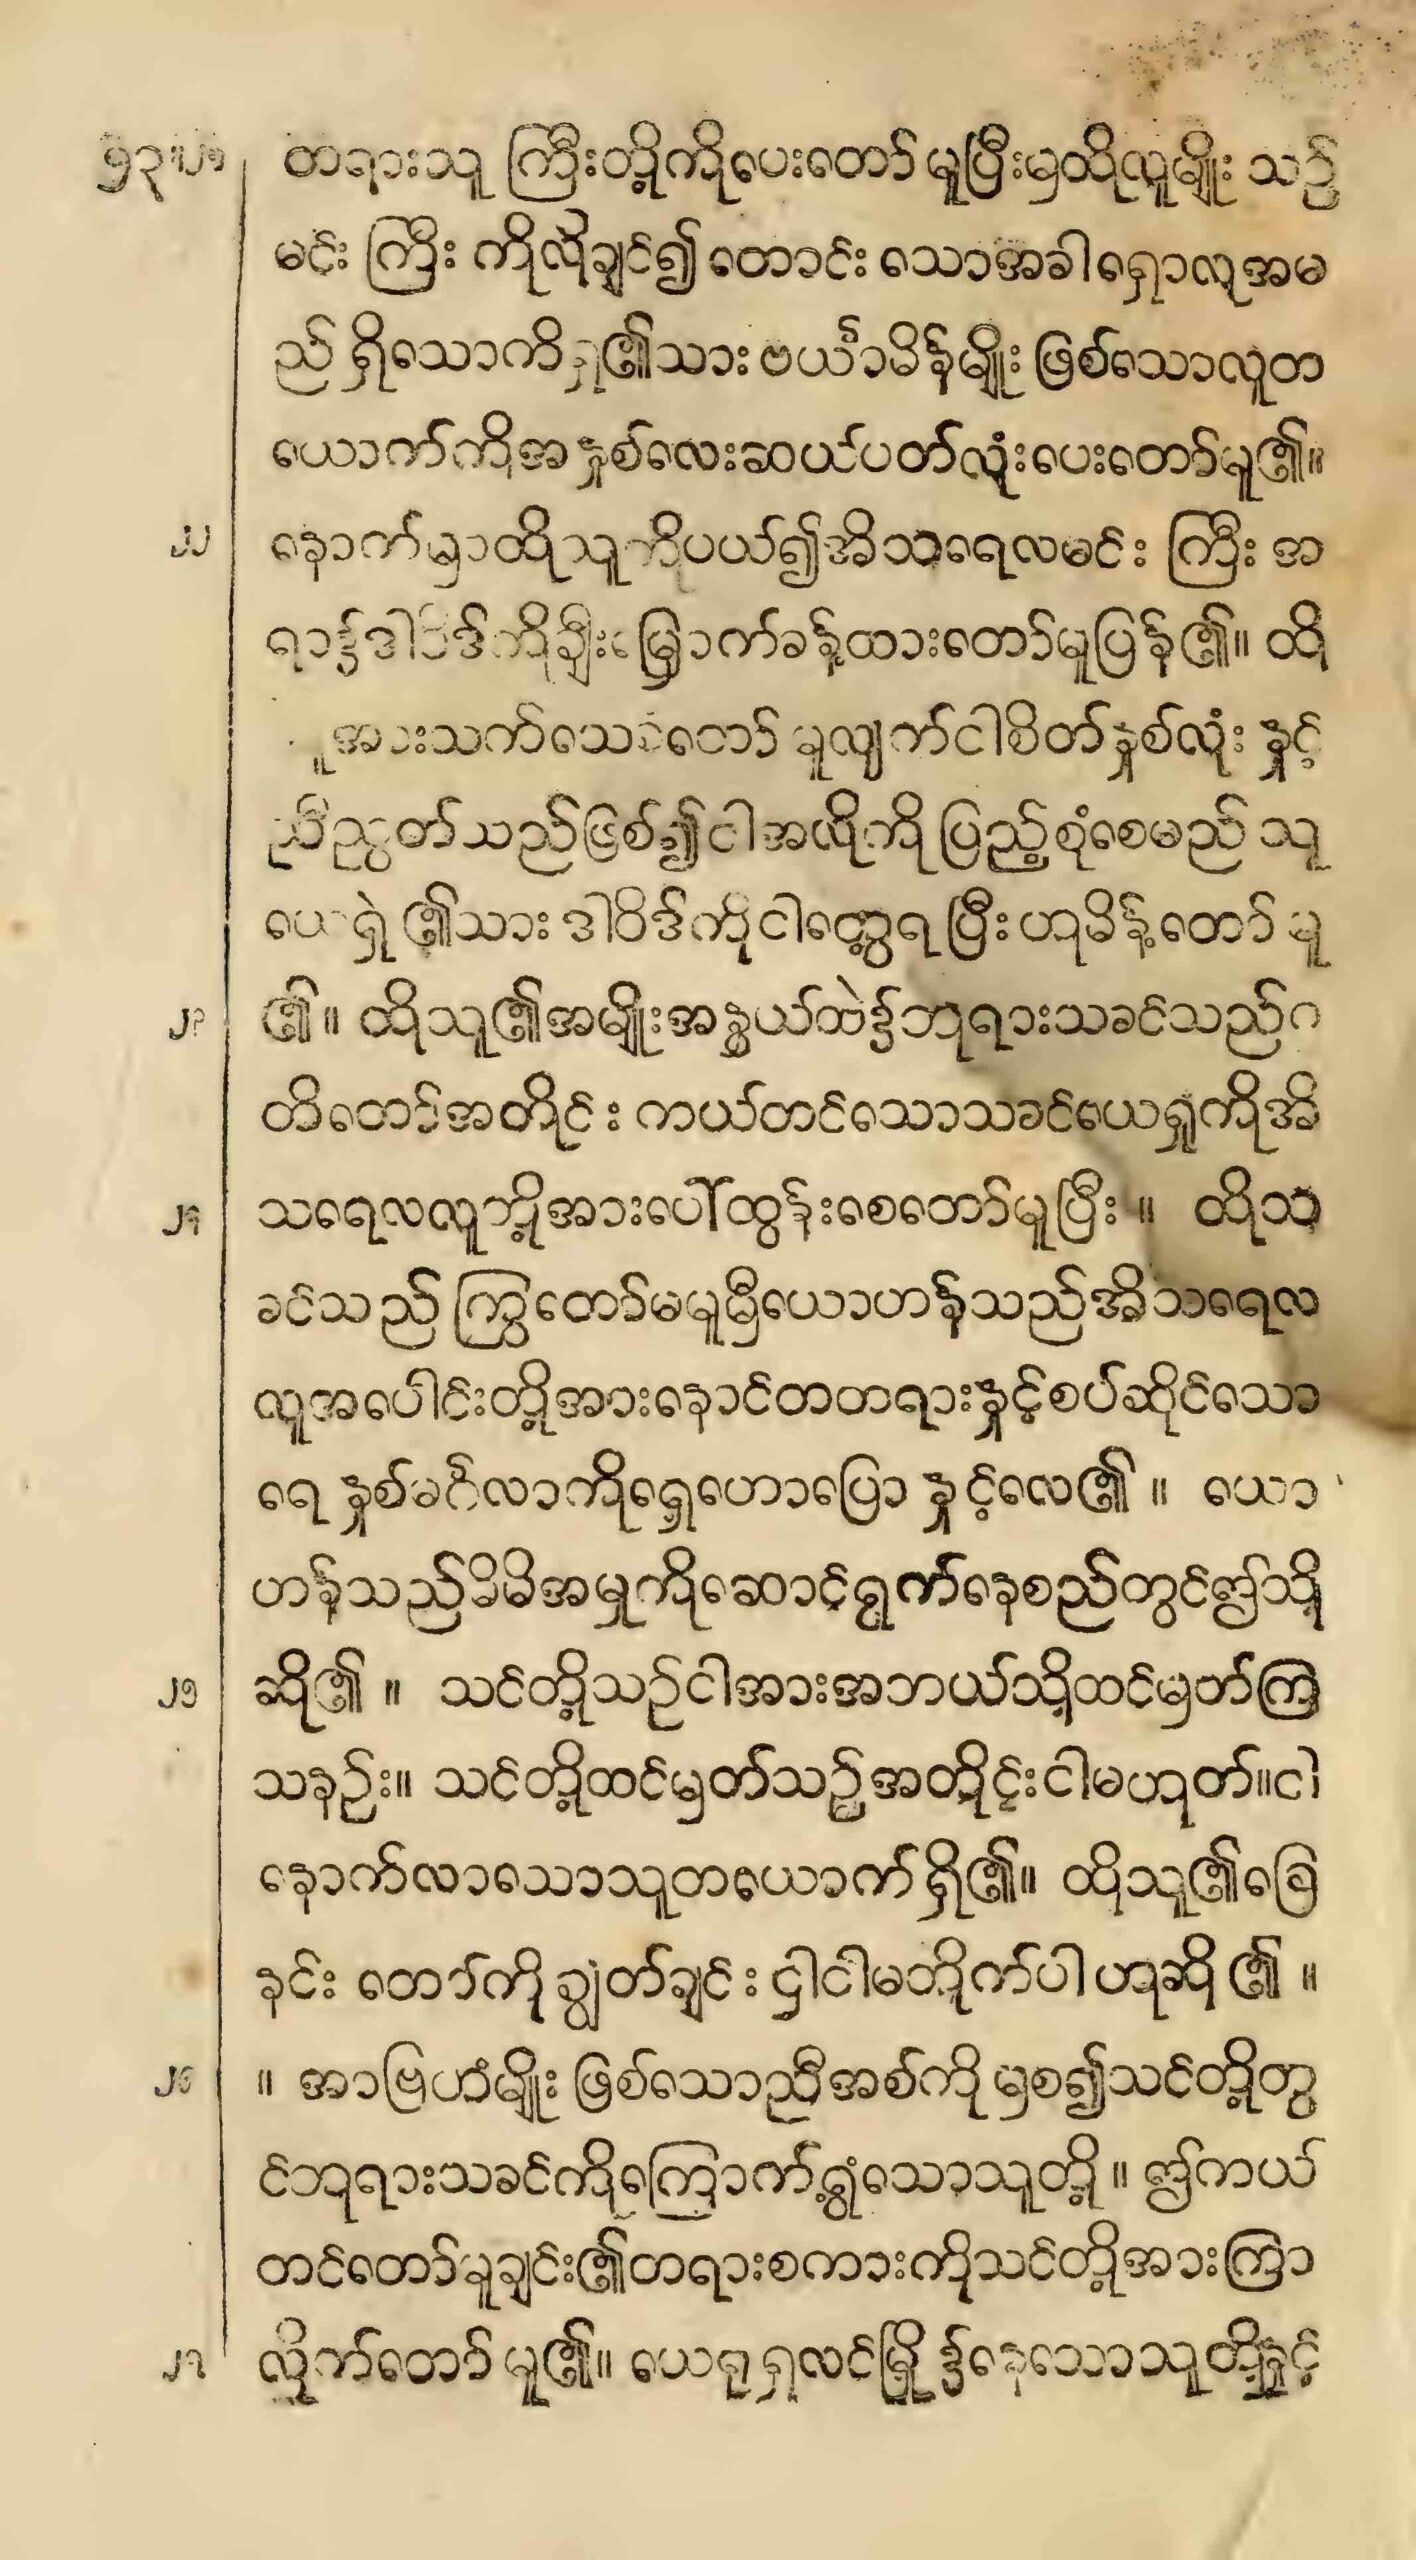 ၁၃ ၊ ၂၁ တရားသူ ကြီးတို့ကိုပေးတော် မူပြီးမှထိုလူမျိုး သဉ်
မင်း ကြီး ကိုလိုချင်၍ တောင်း သောအခါ ရှောလုအမ
ည် ရှိသောကိရှ၏သား ဗယင်္ာမိန်မျိုး ဖြစ်သောလူတ
ယောက်ကိုအနှစ်လေးဆယ်ပတ်လုံးပေးတော်မူ၏။
၂၂ နောက်မှာထိုသူကိုပယ်၍အိသရေလမင်း ကြီး အ
ရာ၌ဒါဝိဒ်ကိုချီးမြှောက်ခန့်ထားတော်မူပြန်၏။ ထို
သူအားသက်သေခံတော် မူလျက်ငါစိတ်နှစ်လုံး နှင့်
ညီညွတ်သည်ဖြစ်၍ငါအလိုကို ပြည့်စုံစေမည် သူ
ယေရှဲ ၏သား ဒါဝိဒ်ကိုငါတွေ့ရ ပြီး ဟုမိန့်တော် မူ
၂၃ ၏။ ထိုသူ၏အမျိုးအနွှယ်ထဲ၌ဘုရားသခင်သည်ဂ
တိတော်အတိုင်း ကယ်တင်သောသခင်ယေရှုကိုအိ
၂၄ သရေလလူတို့အားပေါ်ထွန်းစေတော်မူပြီး ။ ထိုသ
ခင်သည် ကြွတော်မမူမှီယောဟန်သည်အိသရေလ
လူအပေါင်းတို့အားနောင်တတရားနှင့်စပ်ဆိုင်သော
ရေ နှစ်မင်္ဂလာကိုရှေ့ဟောပြော နှင့်လေ၏ ။ ယော
ဟန်သည်မိမိအမှုကိုဆောင့်ရွက်နေစည်တွင်ဤသို့
၂၅ ဆို၏ ။ သင်တို့သဉ်ငါအားအဘယ်သို့ထင်မှတ်ကြ
သနဉ်း။ သင်တို့ထင်မှတ်သဉ့်အတိုင်းငါမဟုတ်။ငါ
နောက်လာသောသူတယောက် ရှိ၏။ ထိုသူ၏ခြေ
နင်း တော်ကို ချွတ်ချင်း ၌ါငါမထိုက်ပါ ဟုဆို ၏ ။
၂၆ ။ အာဗြဟံမျိုး ဖြစ်သောညီအစ်ကို မှစ၍သင်တို့တွ
င်ဘုရားသခင်ကိုကြောက်ရွံ့သောသူတို့ ။ ဤကယ်
တင်တော်မူချင်း၏တရားစကားကိုသင်တို့အားကြာ
၂၇ လိုက်တော် မူ၏။ ယေရု ရှလင်မြို့ ၌နေသောသူတို့နှင့်